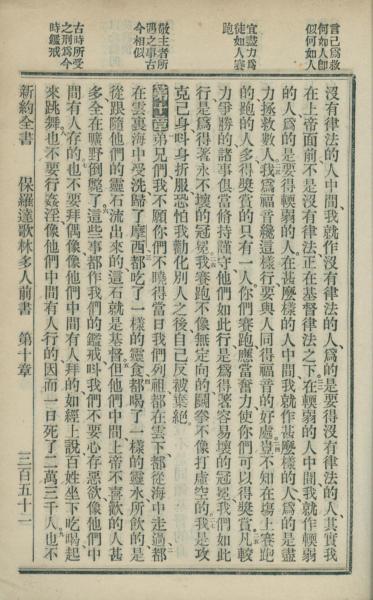 言己為救
何如人即
似何如人
宜盡力為
徒如人賽
跑
敬主者所
遇之事古
今相似
古時所受
之刑為今
時鑑戒
沒有律法的人中間我就作沒有律法的人、為的是要得沒有律法的人、其實我
在上帝面前不是沒有律法正在基督律法之下、在輭弱的人中間我就作輭弱
的人為的是要得輭弱的人、在甚麼樣的人中間我就作甚麼樣的人為的是盡
力拯救數人、我為福音纔這樣行要與人同得福音的好處、豈不知在塲上賽跑
的跑的人多得獎賞的只有一人、你們賽跑應當奮力使你們可以得獎賞、凡較
力爭勝的諸事俱當修持謹守、他們如此行是為得著容易壞的冠冕、我們如此
行是為得著永不壞的冠冕、我賽跑不像無定向的、鬬拳不像打虛空的、我是攻
克己身呌身折服恐怕我勸化別人之後自己反被棄絕、
第十章 弟兄們我不願你們不曉得當日我們列祖都在雲下、都從海中走過、都
在雲裏海中受洗歸了摩西、都吃了一樣的靈食、都喝了一樣的靈水、所飲的是
從跟隨他們的靈石流出來的、這石就是基督、但他們中間上帝不喜歡的人甚
多全在曠野倒斃了、這些事都作我們的鑑戒呌我們不要心存惡欲像他們中
間有人存的、也不要拜偶像像他們中間有人拜的、如經上說百姓坐下吃喝起
來跳舞、也不要行姦淫像他們中間有人行的、因而一日死了二萬三千人、也不
新約全書 保羅達歌林多人前書 第十章 三百五十一